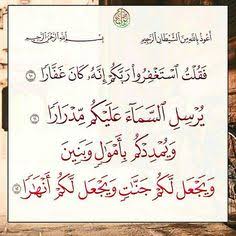 أَعُوذُ بِاللَّهِ مِنَ الشَّيْطَانِ الرَّجِيمِ
بِسْمِ اللَّهِ الرَّحْمَنِ الرَّحِيمِ
فَقُلْتُ ٱسْتَغْفِرُوا۟ رَبَّكُمْ إِنَّهُۥ كَانَ غَفَّارًا ١٠
يُرْسِلِ ٱلسَّمَآءَ عَلَيْكُم مِّدْرَارًا ١١
وَيُمْدِدْكُم بِأَمْوَٰلٍ وَبَنِينَ
وَيَجْعَل لَّكُمْ جَنَّٰتٍ وَيَجْعَل لَّكُمْ أَنْهَٰرًا ١٢